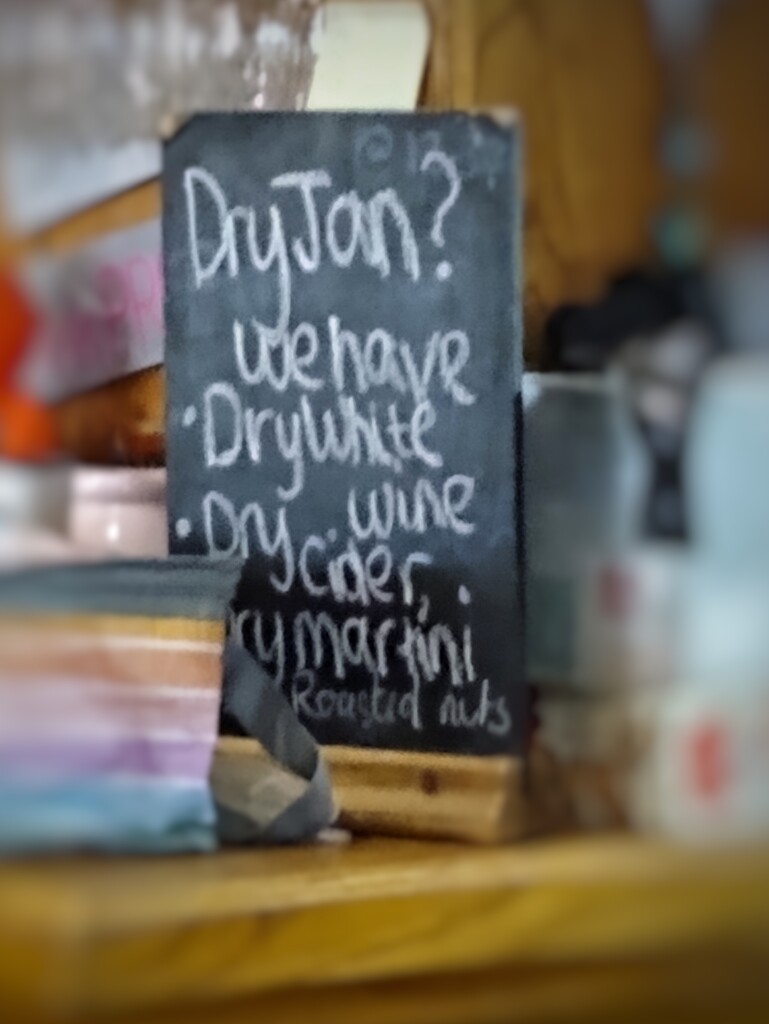 Dry Jan?
we have
• Dry White
wine
• Dry
cider,
ry martini
Roasted nuts